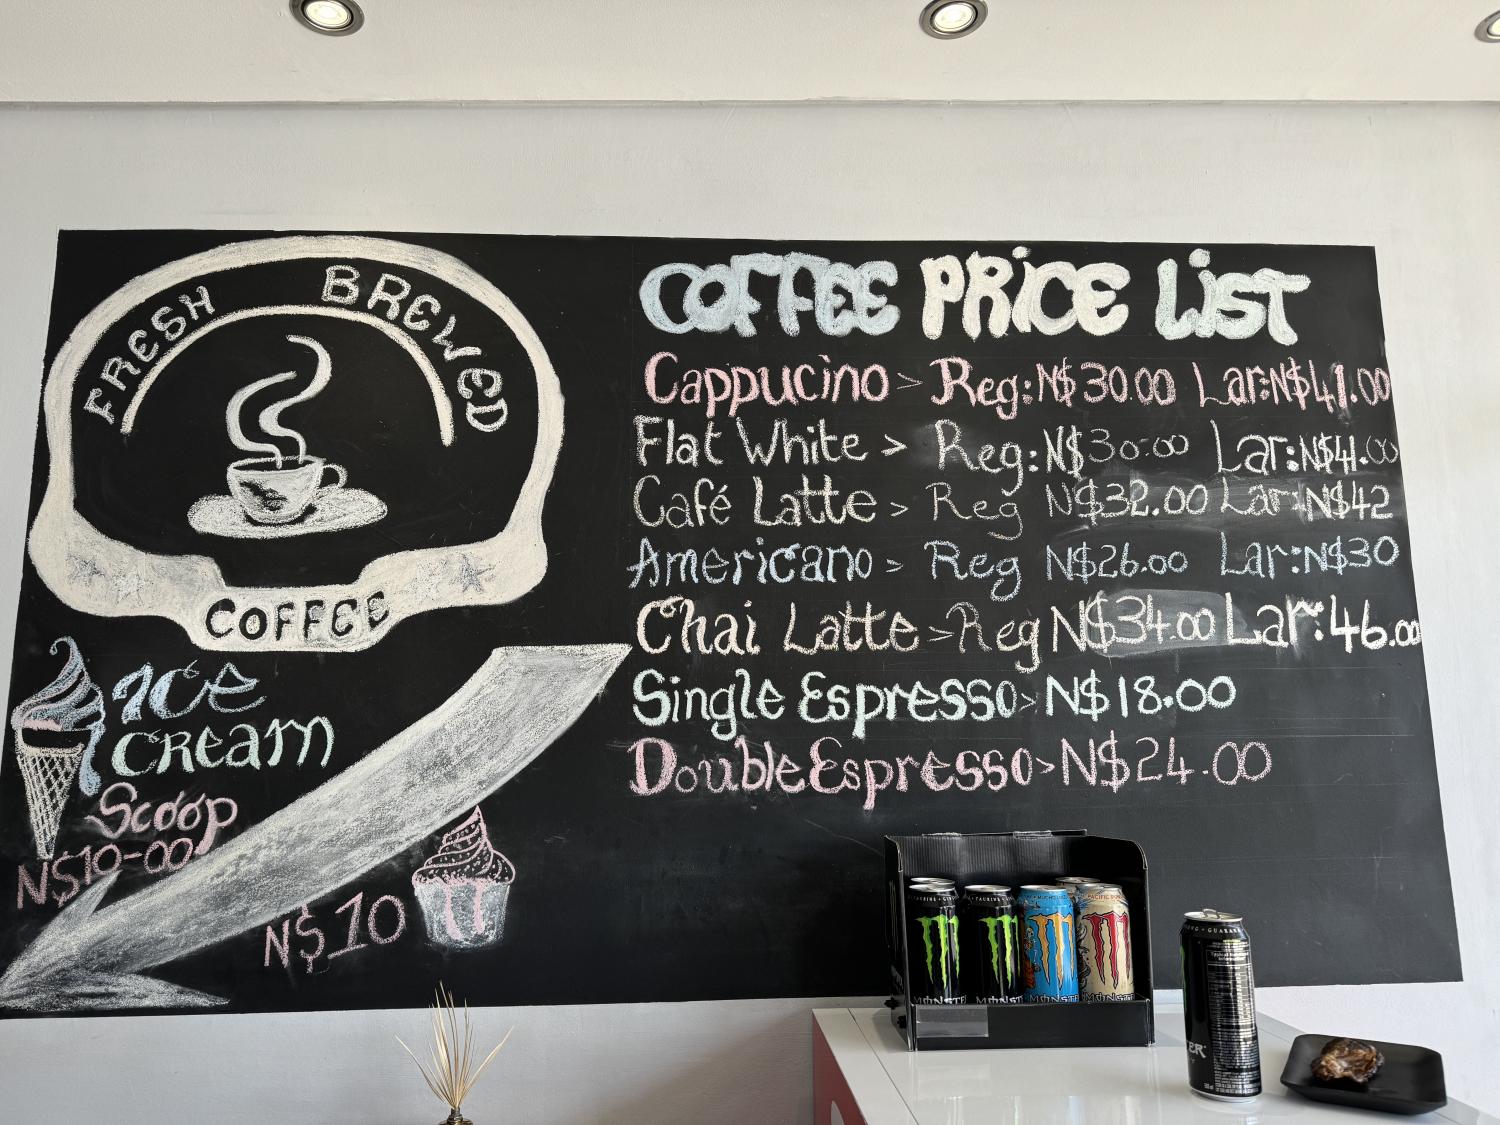 FRESH BREWED
COFFEE
ICE
CREAM
Scoop
N$10-00
N$10
COFFEE PRICE LIST
Cappucino > Reg:N$30.00 Lar:N$41.00
Flat White > Reg:N$30.00 Lar:N$41.00
Café Latte > Reg N$32.00 Lar:N$42
Americano > Reg N$26.00 Lar:N$30
Chai Latte > Reg N$34.00 Lar:46.00
Single Espresso > N$18.00
Double Espresso > N$24.00
MONSTER MONST MONSTE MONSTER